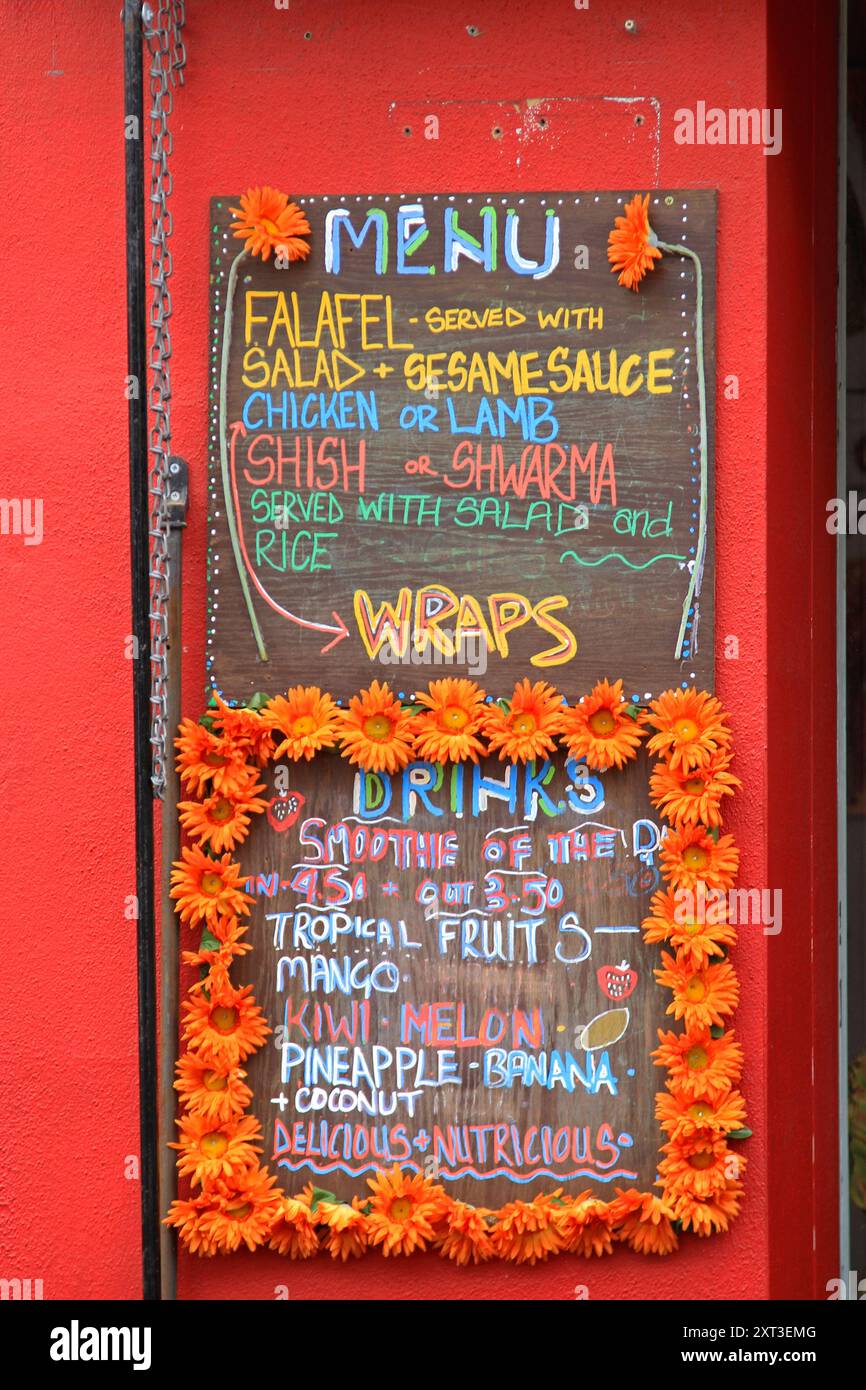 MENU
FALAFEL - SERVED WITH
SALAD + SESAME SAUCE
CHICKEN OR LAMB
SHISH OR SHWARMA
SERVED WITH SALAD and
RICE
WRAPS
DRINKS
SMOOTHIE OF THE D
IN - 4.50 + OUT 3.50
TROPICAL FRUITS —
MANGO.
KIWI · MELON
PINEAPPLE - BANANA.
+ COCONUT
DELICIOUS + NUTRICIOUS.
alamy
Image ID: 2XT3EMG
www.alamy.com